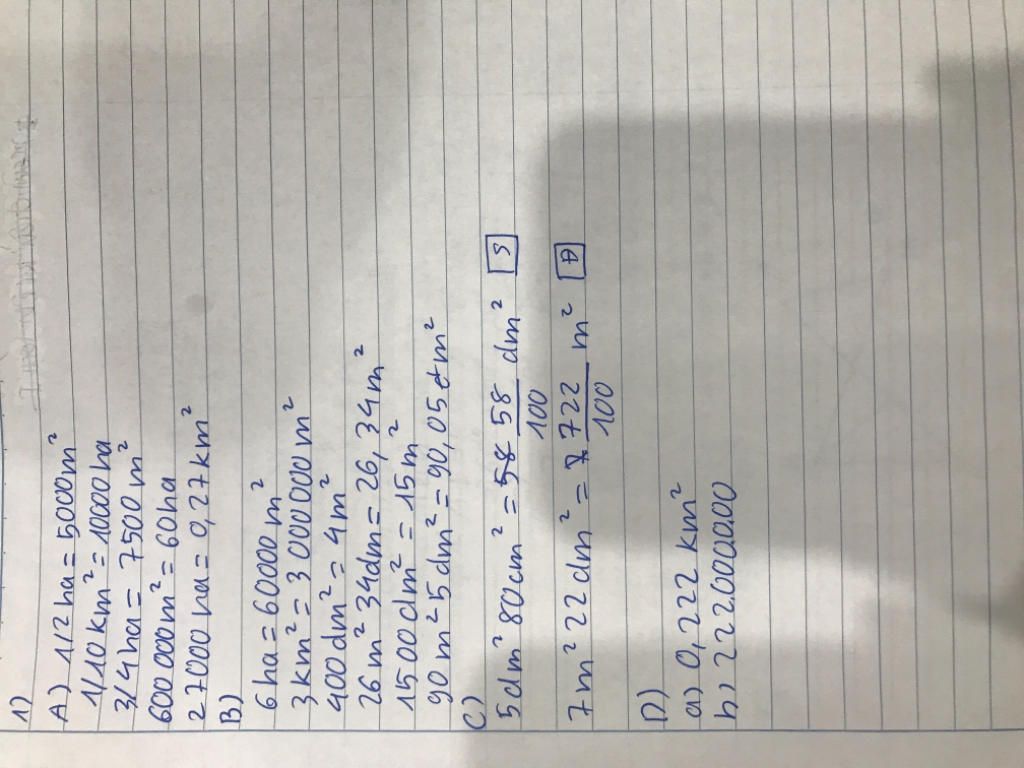 1)
A) 1/2 ha = 5000m²
1/10 km² = 10000 ha
3/4 ha = 7500 m²
600 000 m² = 60 ha
27000 ha = 0,27 km²
B)
6 ha = 60000 m²
3 km² = 3 000 000 m²
400 dm² = 4 m²
26 m² 34dm = 26,34 m²
1500 dm² = 15 m²
90 m² 5 dm² = 90,05 m²
C)
5 dm² 80 cm² = 58 58/100 dm² S
7 m² 22 dm² = 7 722/100 m² Đ
D)
a) 0,222 km²
b) 22.000.00